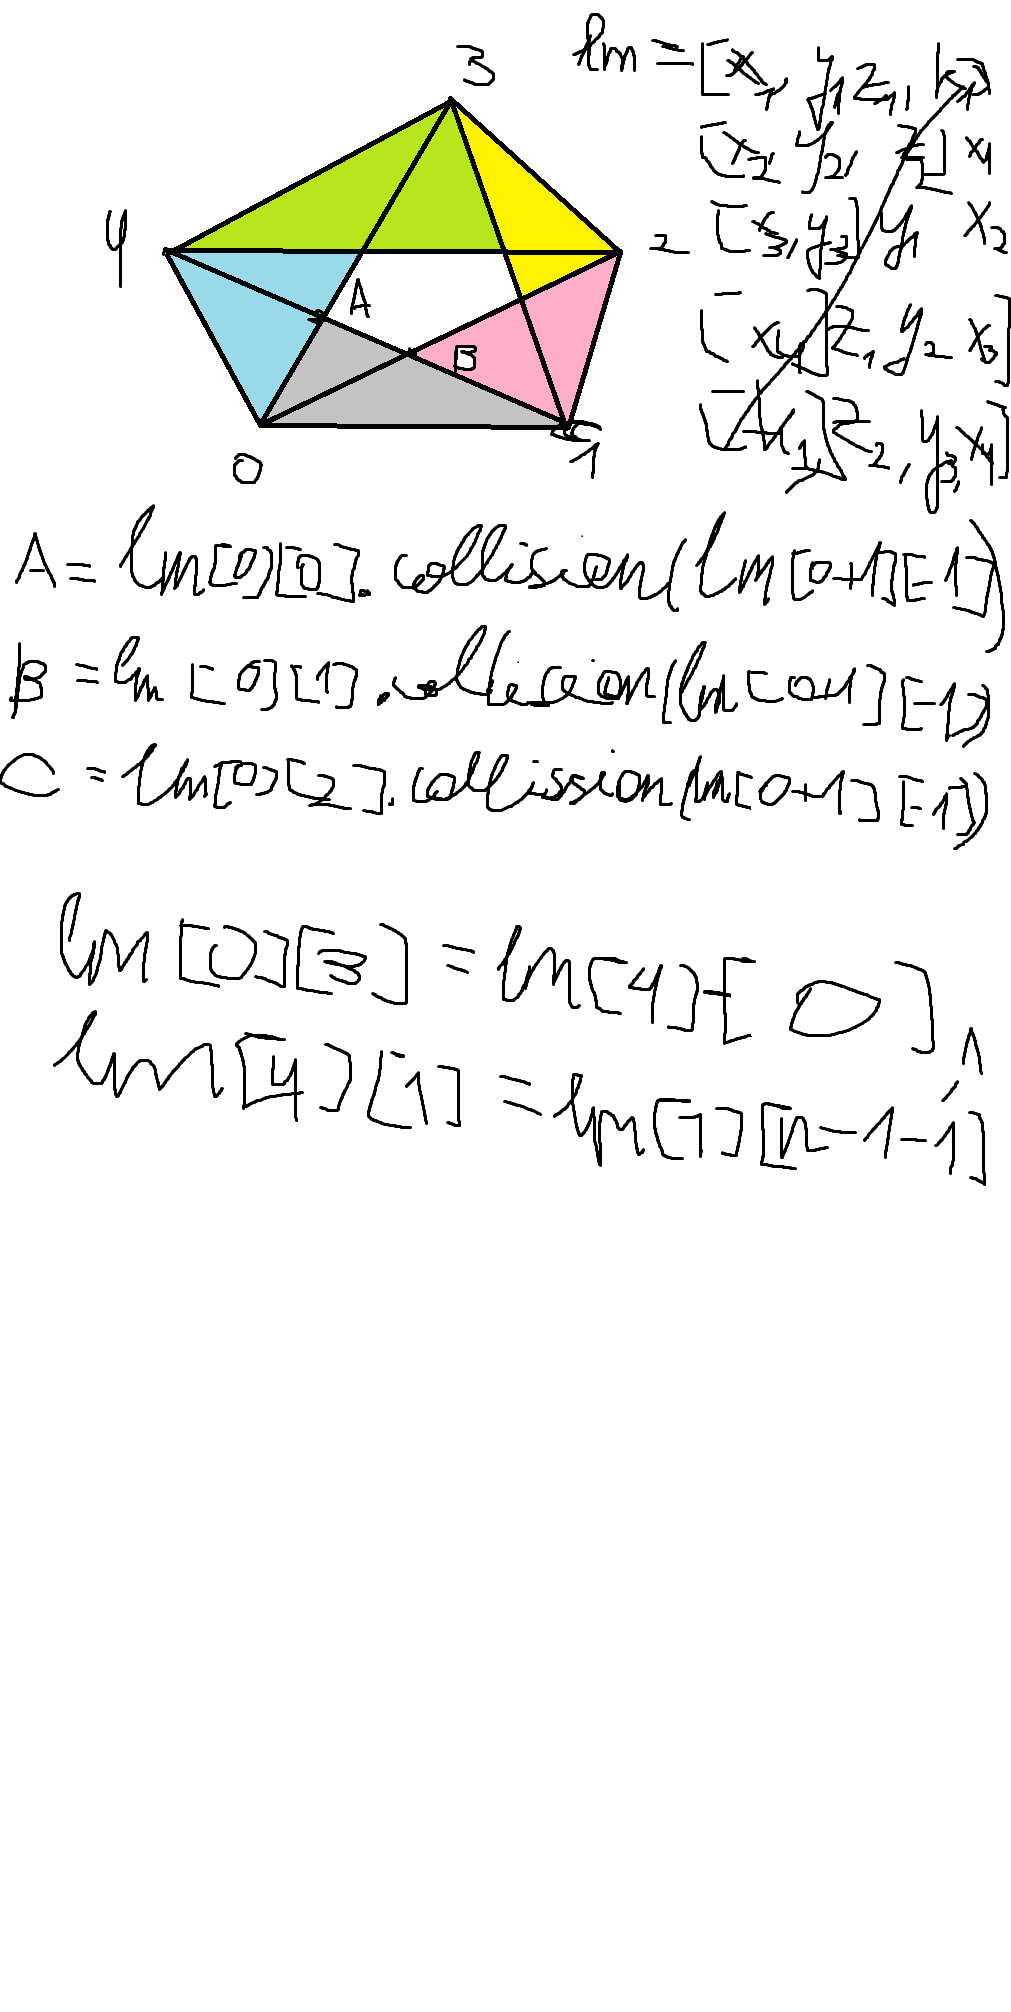 3
lm = [x1, y1 z1, k1]
[x2, y2, z2] x1
4
2
[x3, y3] y1 x2
A
[x4] z1 y2 x3]
B
[k1,] z2, y3, x4]
0
1
A = lm[0][0].collision(lm[0+1][-1])
B = lm[0][1].collision(lm[0+1][-1])
C = lm[0][2].collission(lm[0+1][-1])
lm[0][3] = lm[4][0]
lm[4][1] = lm[1][n-1-1]